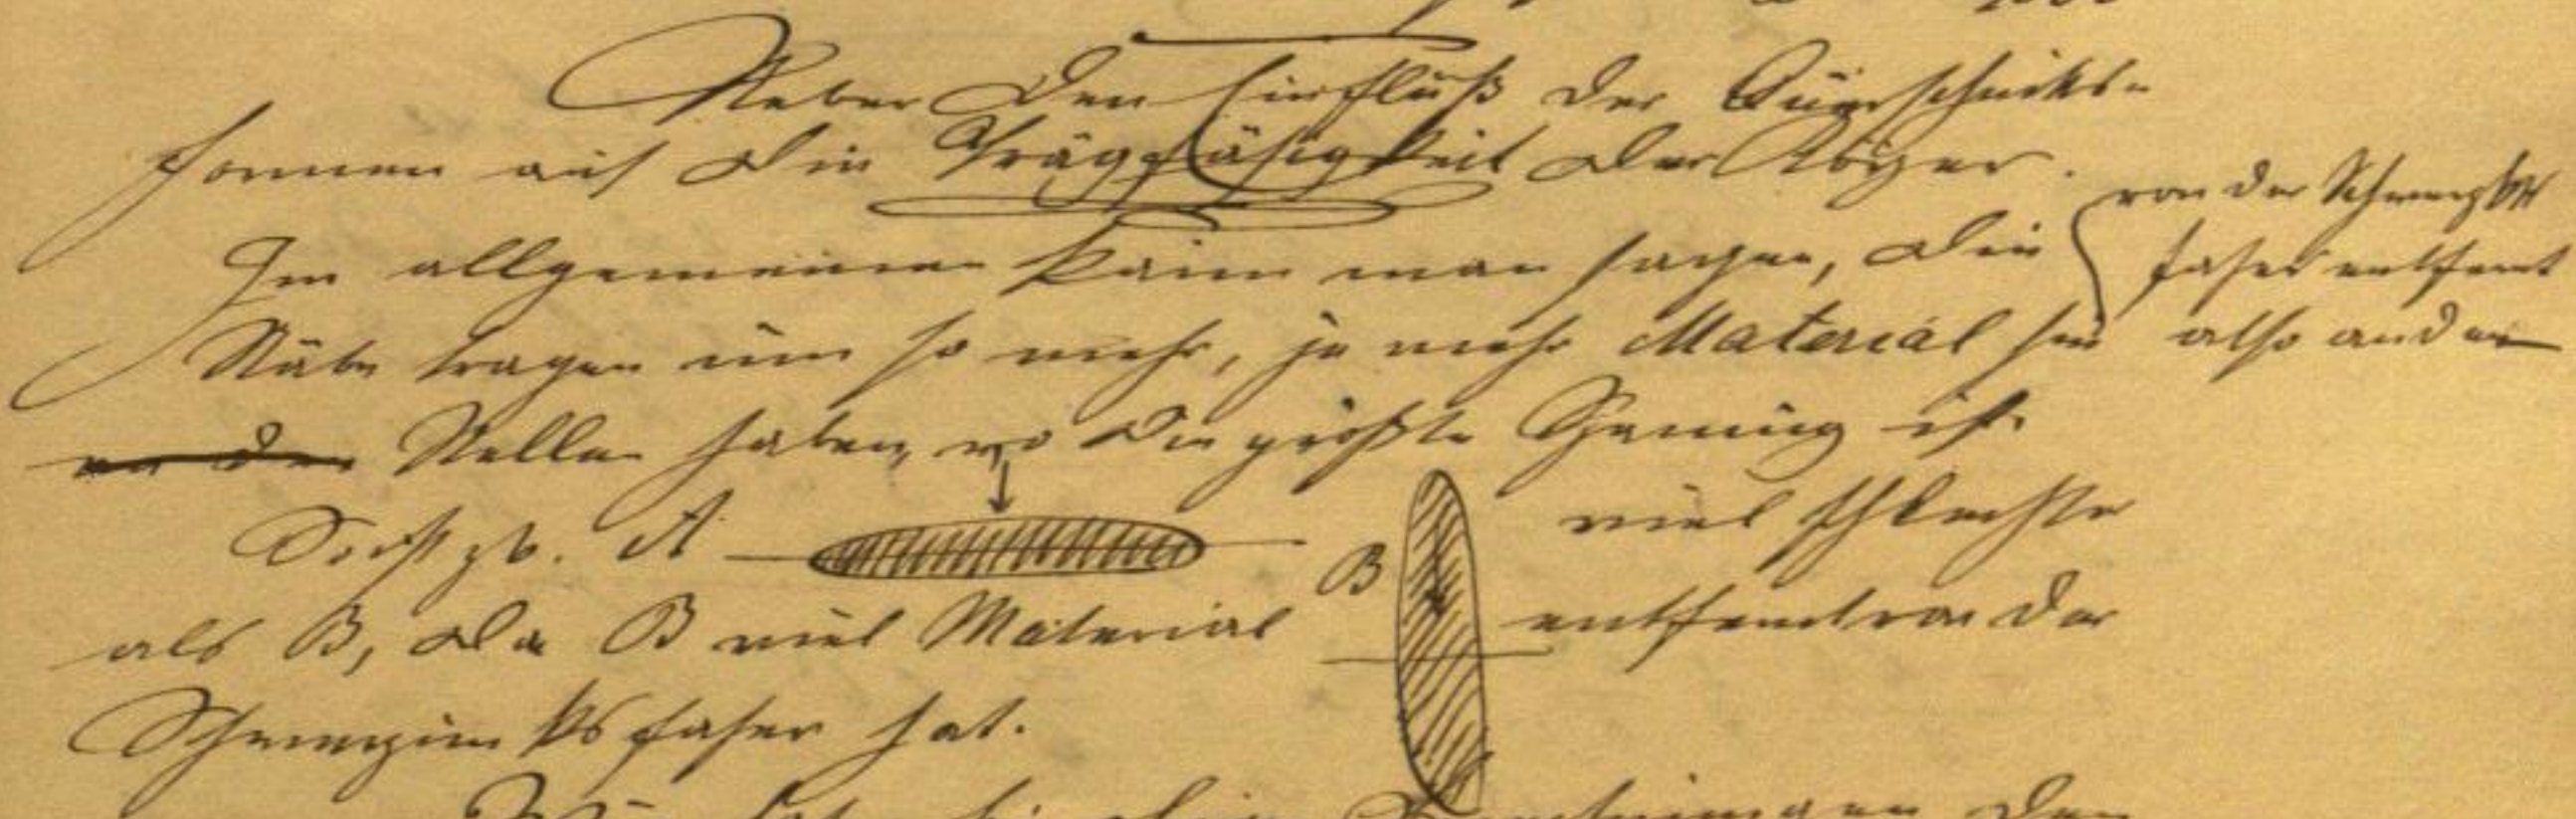 Ueber den Einfluß der Querschnitts-
formen auf die Tragfähigkeit der Körper.
Im allgemeinen kann man sagen, die
Stäbe tragen um so mehr, je mehr Material sie
von der Schwerpkt
faser entfernt
also an den
an den Stellen haben, wo die größte Spannung ist.
So ist zb. A
B
viel schlechter
als B, da B viel Material
entfernt von der
Schwerpunktsfaser hat.